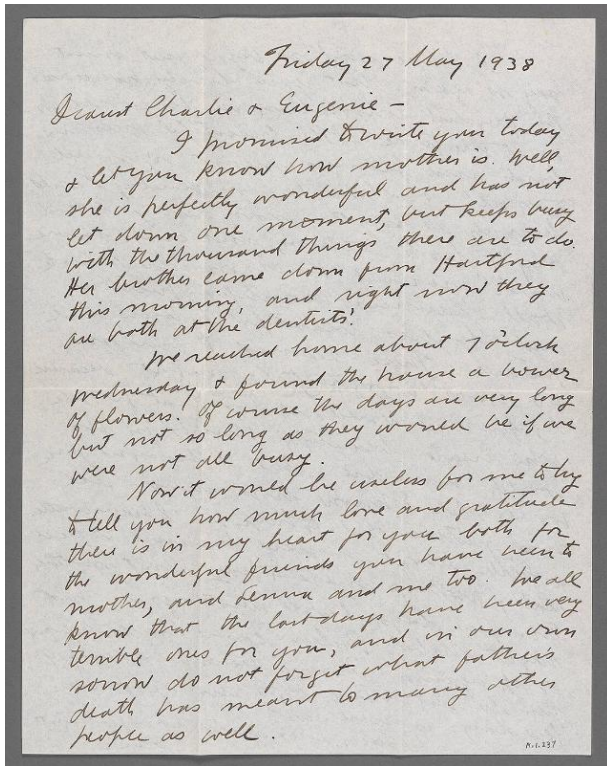 Friday 27 May 1938
Dearest Charlie & Eugenie -
I promised to write you today
& let you know how mother is. Well,
she is perfectly wonderful and has not
let down one moment, but keeps busy
with the thousand things there are to do.
Her brother came down from Hartford
this morning, and right now they
are both at the dentists'.
We reached home about 7 o'clock
Wednesday & found the house a bower
of flowers. Of course the days are very long
but not so long as they would be if we
were not all busy.
Now it would be useless for me to try
to tell you how much love and gratitude
there is in my heart for you both for
the wonderful friends you have been to
mother, and Lenna and me too. We all
know that the last days have been very
terrible ones for you, and in our own
sorrow do not forget what father's
death has meant to many other
people as well.
A.1.237